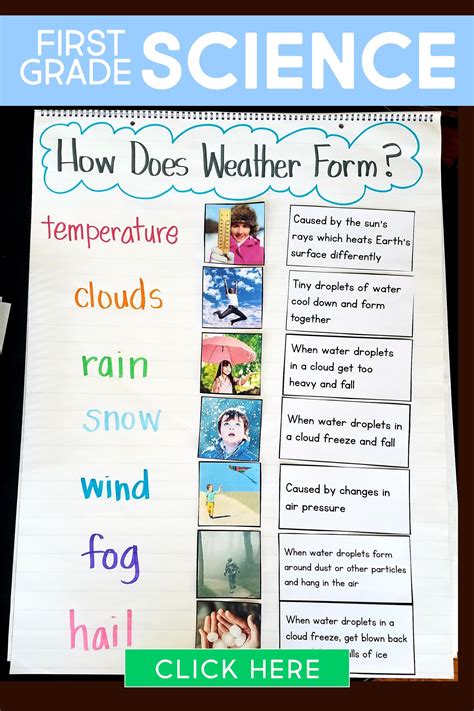 FIRST
GRADE SCIENCE
How Does Weather Form?
temperature
Caused by the sun's
rays which heats Earth's
surface differently
clouds
Tiny droplets of water
cool down and form
together
rain
When water droplets
in a cloud get too
heavy and fall
snow
When water droplets in
a cloud freeze and fall
wind
Caused by changes in
air pressure
fog
When water droplets form
around dust or other particles
and hang in the air
hail
When water droplets in a
cloud freeze, get blown back
of ice
CLICK HERE